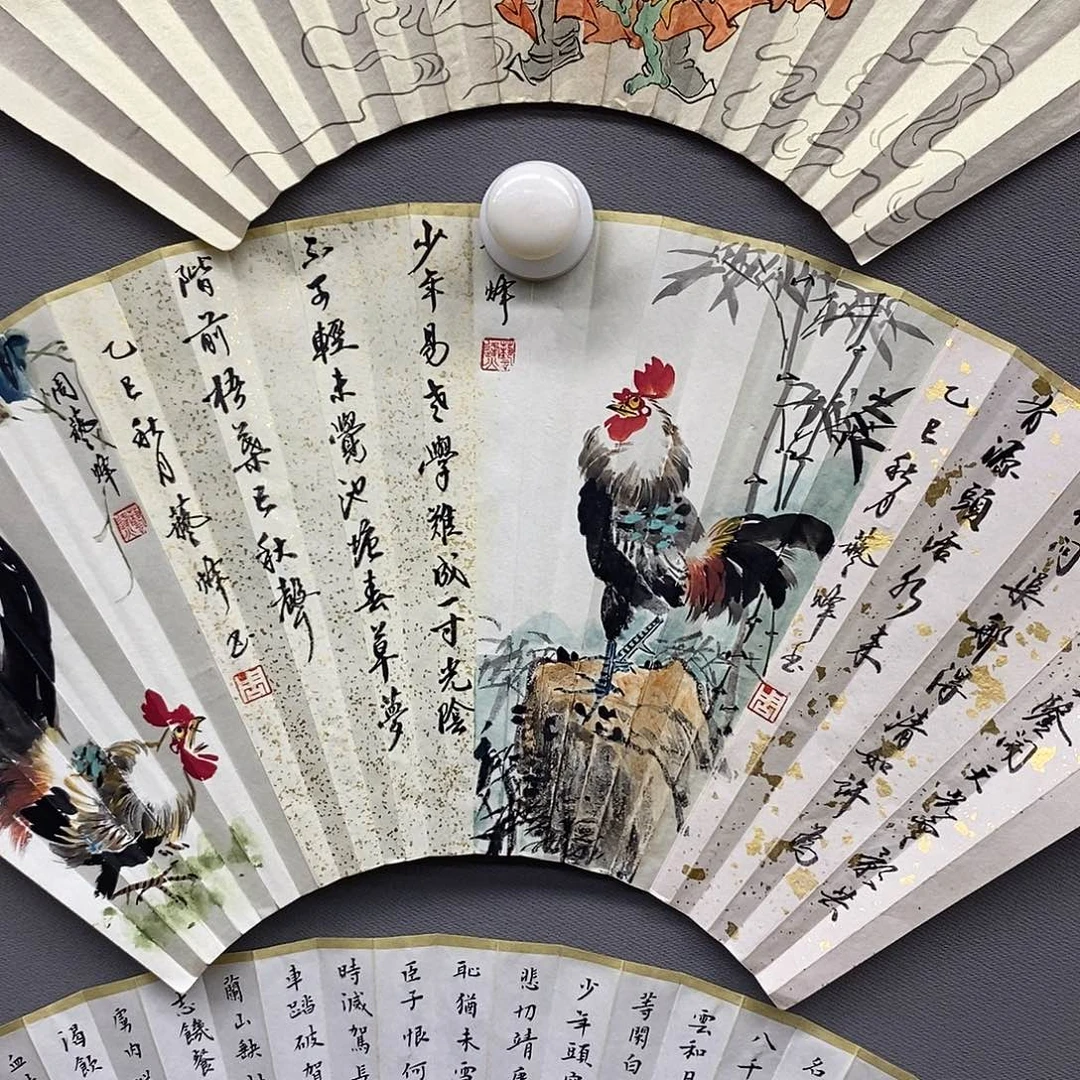 鑒開天光雲影共
問渠那得清如許為
有源頭活水來
乙巳秋月藝峰
峰
少年易老學難成一寸光陰
不可輕未覺池塘春草夢
階前梧葉已秋聲
乙巳秋月藝峰
周藝峰
名
八千
雲和月
等閑白
少年頭空
悲切靖康
恥猶未雪
臣子恨何
時滅駕長
車踏破賀
蘭山缺
志饑餐
渴飲
虜肉
血